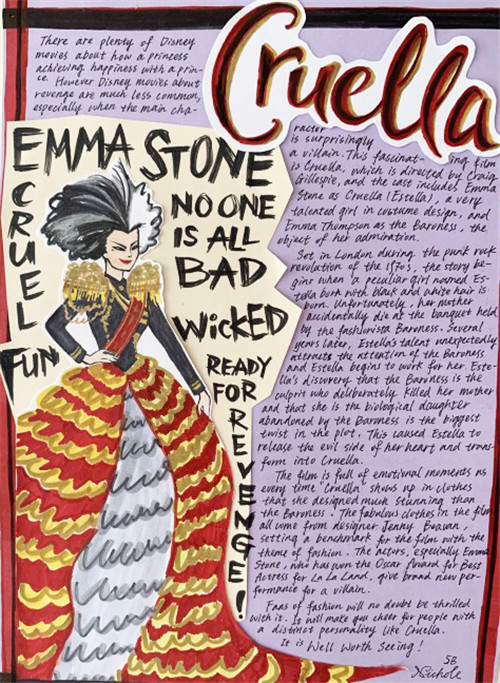 Cruella
There are plenty of Disney
movies about how a princess
achieving happiness with a prin-
ce. However Disney movies about
revenge are much less common,
especially when the main cha-
racter
is surprisingly
a villain. This fascinat- ing film
is Cruella, which is directed by Craig
Gillespie, and the cast includes Emma
Stone as Cruella (Estella), a very
talented girl in costume design, and
Emma Thompson as the Baroness, the
object of her admiration.
Set in London during the punk rock
revolution of the 1970s, the story be-
gins when a peculiar girl named Es-
tella born with black and white hair is
born. Unfortunately, her mother
accidentally die at the banquet held
by the fashionista Baroness. Several
years later, Estella's talent unexpectedly
attracts the attention of the Baroness
and Estella begins to work for her. Este-
lla's discovery that the Baroness is the
culprit who deliberately killed her mother
and that she is the biological daughter
abandoned by the Baroness is the biggest
twist in the plot. This caused Estella to
release the evil side of her heart and trans-
form into Cruella.
The film is full of emotional moments as
every time "Cruella" shows up in clothes
that she designed much stunning than
the Baroness. The fabulous clothes in the film
all come from designer Jenny Beavan,
setting a benchmark for the film with the
theme of fashion. The actors, especially Emma
Stone, who has won the Oscar Award for Best
Actress for La La Land, give brand new per-
formance for a villain.
Fans of fashion will no doubt be thrilled
with it. It will make you cheer for people with
a distinct personality like Cruella.
It is Well Worth Seeing!
EMMA STONE
CRUEL
FUN
NO ONE
IS ALL
BAD
WicKED
READY
FOR
REVENGE!
5B
Nichole